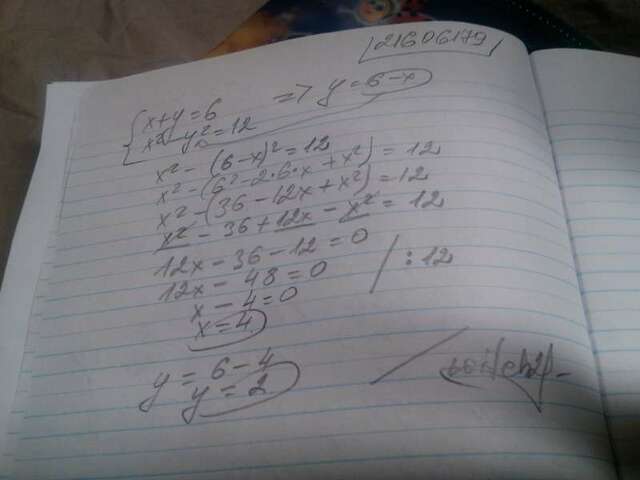 21606179
{ x+y=6 => y=6-x
x² - y²=12
x² - (6-x)² = 12
x² - (6² - 2·6·x + x²) = 12
x² - (36 - 12x + x²) = 12
x² - 36 + 12x - x² = 12
12x - 36 - 12 = 0
12x - 48 = 0 / :12
x - 4 = 0
x = 4
y = 6 - 4
y = 2